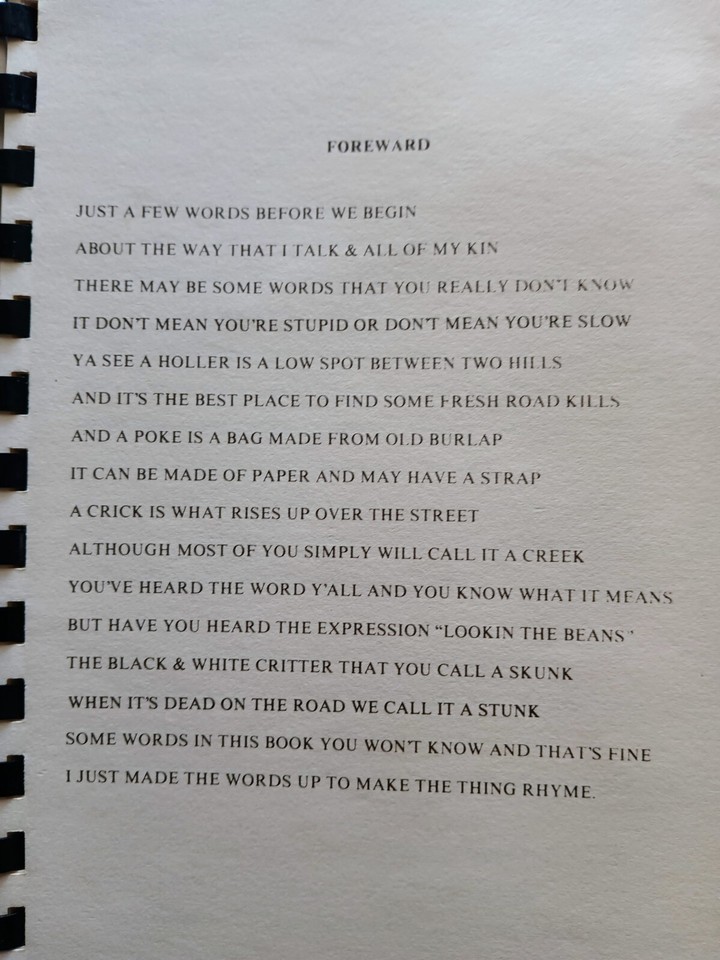 FOREWARD
JUST A FEW WORDS BEFORE WE BEGIN
ABOUT THE WAY THAT I TALK & ALL OF MY KIN
THERE MAY BE SOME WORDS THAT YOU REALLY DON'T KNOW
IT DON'T MEAN YOU'RE STUPID OR DON'T MEAN YOU'RE SLOW
YA SEE A HOLLER IS A LOW SPOT BETWEEN TWO HILLS
AND IT'S THE BEST PLACE TO FIND SOME FRESH ROAD KILLS
AND A POKE IS A BAG MADE FROM OLD BURLAP
IT CAN BE MADE OF PAPER AND MAY HAVE A STRAP
A CRICK IS WHAT RISES UP OVER THE STREET
ALTHOUGH MOST OF YOU SIMPLY WILL CALL IT A CREEK
YOU'VE HEARD THE WORD Y'ALL AND YOU KNOW WHAT IT MEANS
BUT HAVE YOU HEARD THE EXPRESSION “LOOKIN THE BEANS”
THE BLACK & WHITE CRITTER THAT YOU CALL A SKUNK
WHEN IT'S DEAD ON THE ROAD WE CALL IT A STUNK
SOME WORDS IN THIS BOOK YOU WON'T KNOW AND THAT'S FINE
I JUST MADE THE WORDS UP TO MAKE THE THING RHYME.